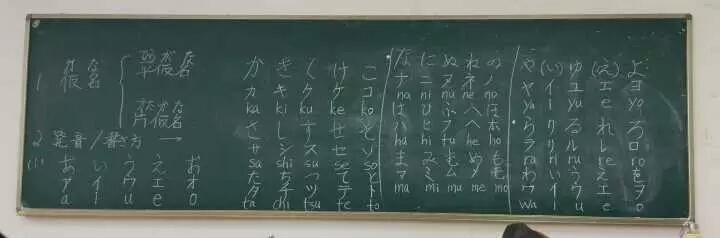 かな
1. 仮名
がな
平仮名
かな
片仮名
2 発音/書き方 →
(1) あ い う え お
ア イ ウ エ オ
a i u e o
か き く け こ
カ キ ク ケ コ
ka ki ku ke ko
さ し す せ そ
サ シ ス セ ソ
sa shi su se so
た ち つ て と
タ チ ツ テ ト
ta chi tsu te to
な に ぬ ね の
ナ ニ ヌ ネ ノ
na ni nu ne no
は ひ ふ へ ほ
ハ ヒ フ ヘ ホ
ha hi fu he ho
ま み む め も
マ ミ ム メ モ
ma mi mu me mo
や (い) ゆ (え) よ
ヤ イ ユ エ ヨ
ya i yu e yo
ら り る れ ろ
ラ リ ル レ ロ
ra ri ru re ro
わ い う え を
ワ イ ウ エ ヲ
wa i u e o